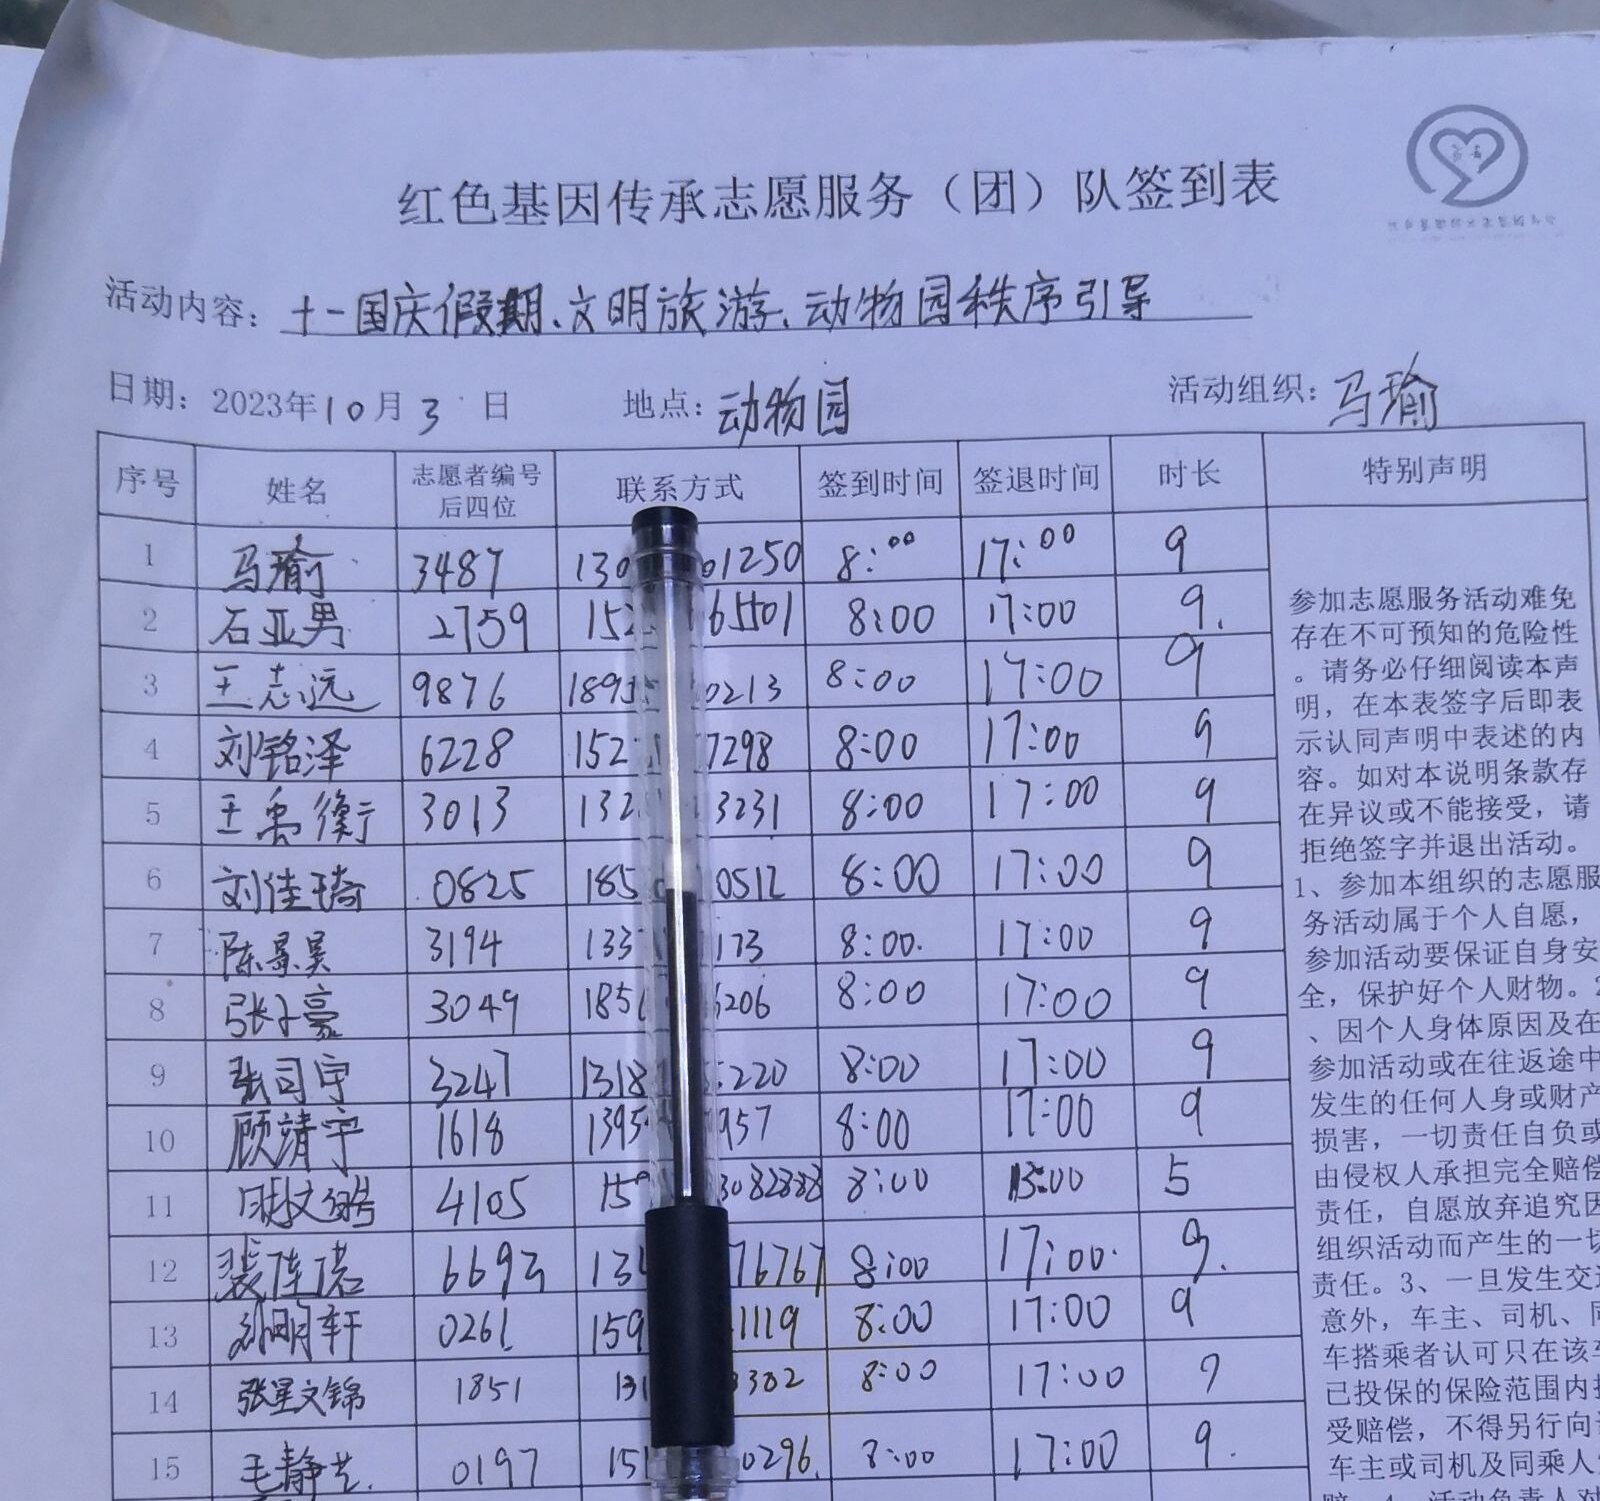 红色基因传承志愿服务（团）队签到表
活动内容：十一国庆假期、文明旅游、动物园秩序引导
日期：2023年10月3日 地点：动物园 活动组织：马瑜
序号 姓名 志愿者编号后四位 联系方式 签到时间 签退时间 时长 特别声明
1 马瑜 3487 130 01250 8:00 17:00 9
2 石亚男 2759 152 65501 8:00 17:00 9.
3 王志远 9876 1893 0213 8:00 17:00 9
4 刘铭泽 6228 152 7298 8:00 17:00 9
5 王禹衡 3013 132 3231 8:00 17:00 9
6 刘佳琦 0825 185 0512 8:00 17:00 9
7 陈景昊 3194 133 173 8:00. 17:00 9
8 张子豪 3049 185 206 8:00 17:00 9
9 张司宇 3247 1318 220 8:00 17:00 9
10 顾靖宇 1618 1395 957 8:00 17:00 9
11 4105 15 8:00 13:00 5
12 裴佳诺 669 13 76767 8:00 17:00. 9.
13 明轩 0261 159 1119 8:00 17:00 9
14 张星文锦 1851 131 3302 8:00 17:00 9
15 毛静艺. 0197 151 0296. 8:00 17:00 9.
参加志愿服务活动难免
存在不可预知的危险性
。请务必仔细阅读本声
明，在本表签字后即表
示认同声明中表述的内
容。如对本说明条款存
在异议或不能接受，请
拒绝签字并退出活动。
1、参加本组织的志愿服
务活动属于个人自愿，
参加活动要保证自身安
全，保护好个人财物。2
、因个人身体原因及在
参加活动或在往返途中
发生的任何人身或财产
损害，一切责任自负或
由侵权人承担完全赔偿
责任，自愿放弃追究因
组织活动而产生的一切
责任。3、一旦发生交通
意外，车主、司机、同
车搭乘者认可只在该车
已投保的保险范围内接
受赔偿，不得另行向
车主或司机及同乘人